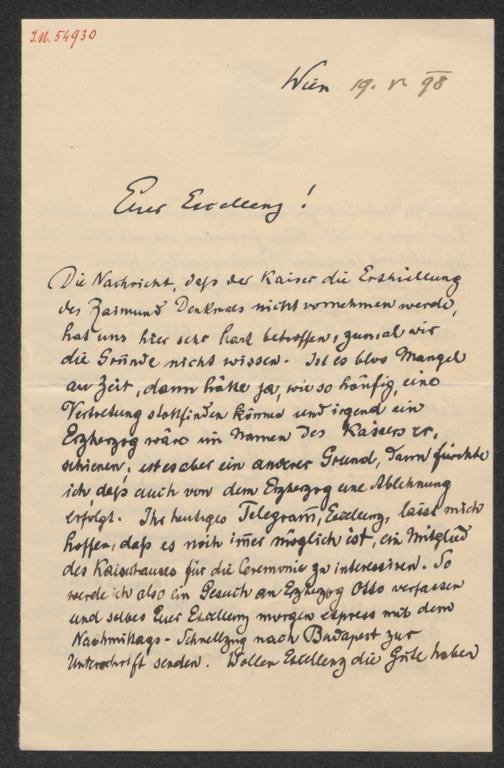 I.N. 54930
Wien 19. V 98
Euer Excellenz!
Die Nachricht, daß der Kaiser die Enthüllung
des Raimund Denkmals nicht vornehmen werde,
hat uns hier sehr hart betroffen, zumal wir
die Gründe nicht wissen. Ist es blos Mangel
an Zeit, dann hätte ja, wie so häufig, eine
Vertretung stattfinden können und irgend ein
Erzherzog wäre im Namen des Kaisers er-
schienen; ist es aber ein anderer Grund, dann fürchte
ich daß auch von dem Erzherzog eine Ablehnung
erfolgt. Ihr heutiges Telegram, Excellenz, lässt mich
hoffen, daß es noch imer möglich ist, ein Mitglied
des Kaiserhauses für die Ceremonie zu interessiren. So
werde ich also ein Gesuch an Erzherzog Otto verfassen
und selbes Euer Excellenz morgen express mit dem
Nachmittags-Schnellzug nach Budapest zur
Unterschrift senden. Wollen Excellenz die Güte haben